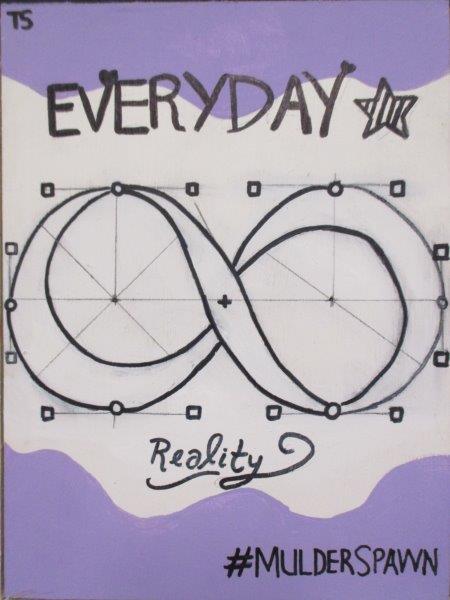 TS
EVERYDAY
Reality
#MULDERSPAWN